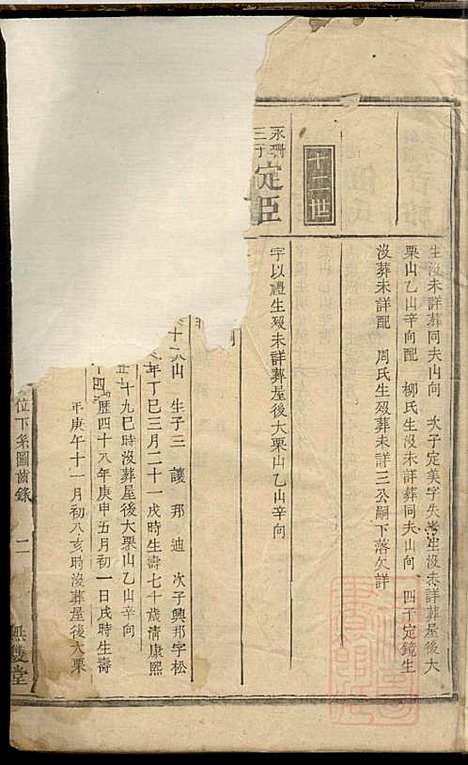 生沒未詳葬同夫山向　次子定美字失考生沒未詳葬屋後大
栗山乙山辛向配　柳氏生沒未詳葬同夫山向　四子定鏡生
沒葬未詳配　周氏生歿葬未詳三公嗣下落欠詳
十二世
永珊
三子
定臣
字以禮生歿未詳葬屋後大栗山乙山辛向
山　生子三　讓　邦　迪　次子興邦字松
年丁巳三月二十一戌時生壽七十歲清康熙
十九巳時沒葬屋後大栗山乙山辛向
曆四十八年庚申五月初一日戌時生壽
年庚午十一月初八亥時沒葬屋後大栗
位下系圖齒錄
二
無雙堂